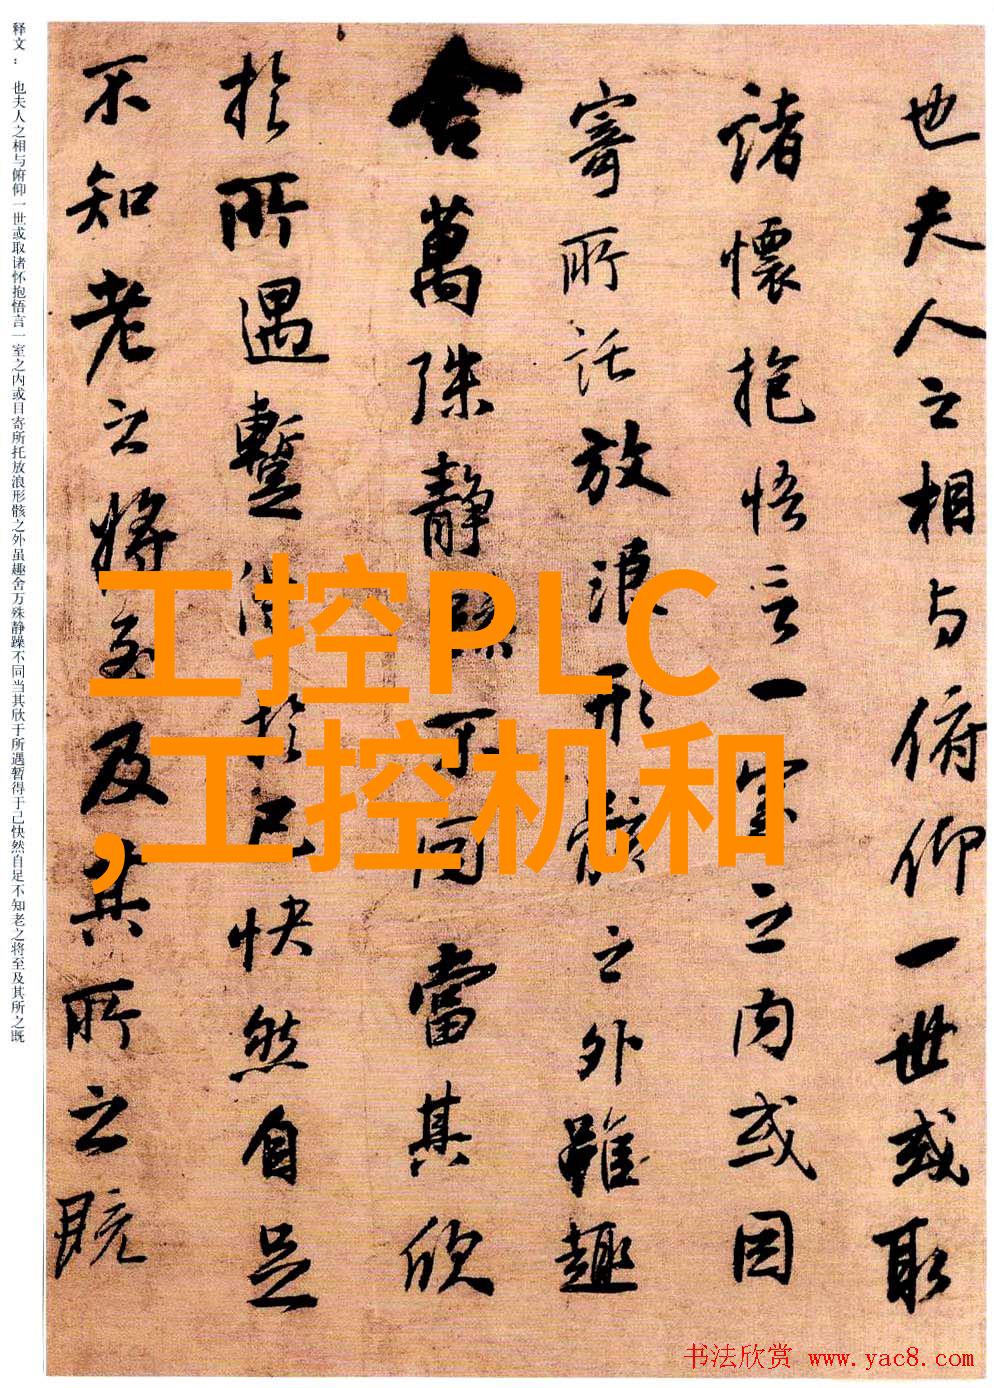 也夫人之相与俯仰一世或取
諸懷抱悟言一室之内或因
寄所託放浪形骸之外雖趣
舍萬殊静躁不同當其欣
於所遇暫得於己快然自足
不知老之將至及其所之既
释文： 也夫人之相与俯仰一世或取诸怀抱悟言一室之内或目寄所托放浪形骸之外虽趣舍万殊静躁不同当其欣于所遇暂得于己快然自足不知老之将至及其所之既
工控PLC
,工控机和
书法欣赏 www.yac8.com